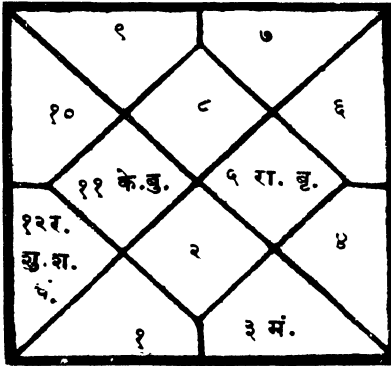 ९ ७
१० ८ ६
११ के.बु. ५ रा. बृ.
१२र.
शु.श.
चं.
२ ४
१ ३ मं.